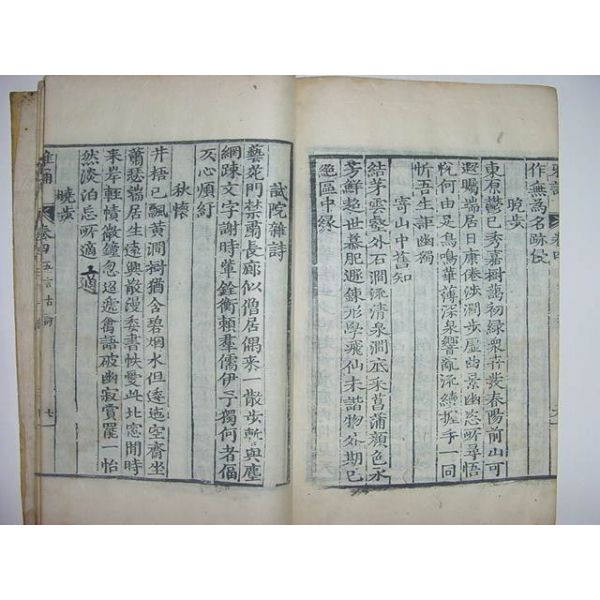 雅誦 卷四
作無為名跡役
曉步
東原鬱已秀嘉樹藹初綠衆卉發春陽前山可
遐矚端居日康倦涉澗步虛曲景幽忽所尋悟
悅何由足鳥鳴華薄深泉響亂流續握手一同
忻吾生詎幽獨
寄山中舊知
結茅雲壑外石澗流清泉澗底采菖蒲顏色永
芳鮮超世慕肥遯鍊形學飛仙未諧物外期已
絕區中緣
試院雜詩
藝苑門禁肅長廊似僧居偶來一散步暫與塵
網疎文字謝時輩銓衡賴羣儒伊予獨何者偪
仄心煩紆
秋懷
井梧已飄黃澗樹猶含碧烟水但逶迤空齋坐
蕭瑟端居生遠興散漫委書帙愛此北窓閒時
來岸輕幘微鐘忽迢遞禽語破幽寂賞罷一怡
然淡泊忘所適 適
曉步
雅誦 卷四 五言古詩 七